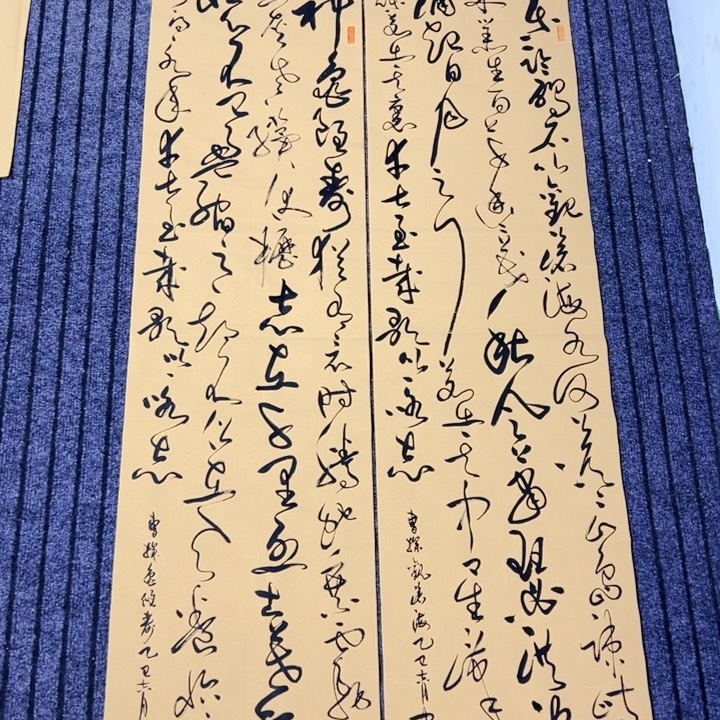 東臨碣石以觀滄海水何澹澹山島竦峙
木叢生百草豐茂秋風蕭瑟洪波
涌起日月之行若出其中星漢
爛若出其裏幸甚至哉歌以詠志
曹操觀滄海乙巳六月
神龜雖壽猶有竟時騰蛇乘霧終
灰老驥伏櫪志在千里烈士暮年
心不已盈縮之期不但在天養怡
得永年幸甚至哉歌以詠志
曹操龜雖壽乙巳六月